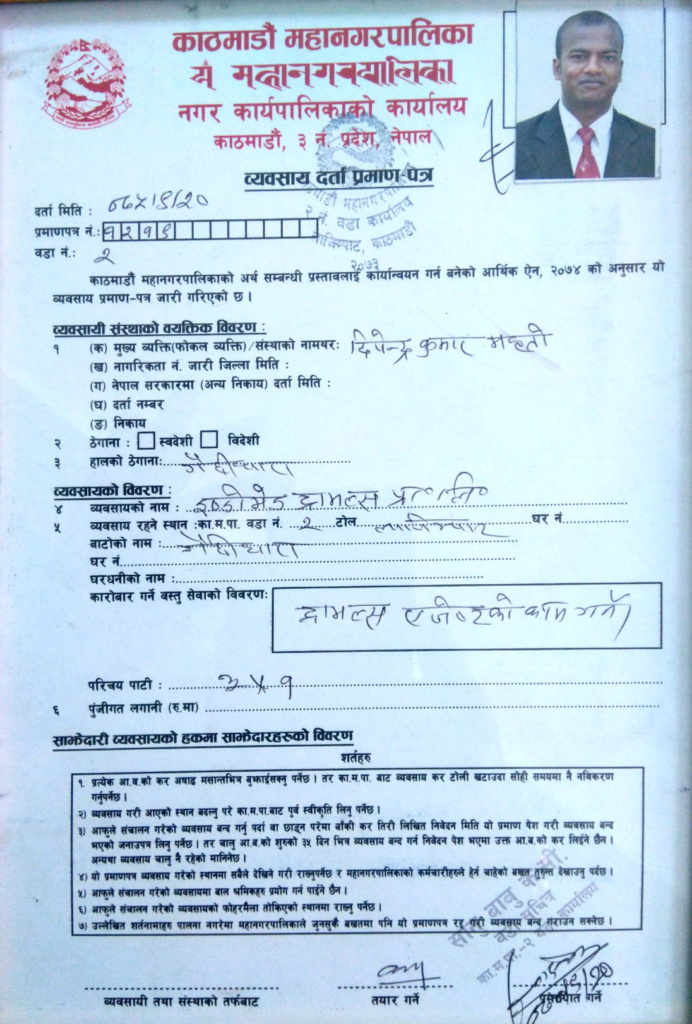 काठमाडौं महानगरपालिका
नगर कार्यपालिकाको कार्यालय
काठमाडौं, ३ नं. प्रदेश, नेपाल
व्यवसाय दर्ता प्रमाण-पत्र
दर्ता मिति : ०७५/६/२०
प्रमाणपत्र नं.: १२१६
वडा नं.: २
२ नं. वडा कार्यालय
लाजिम्पाट, काठमाडौं
२०७३
काठमाडौं महानगरपालिकाको अर्थ सम्बन्धी प्रस्तावलाई कार्यान्वयन गर्न बनेको आर्थिक ऐन, २०७४ को अनुसार यो
व्यवसाय प्रमाण-पत्र जारी गरिएको छ ।
व्यवसायी संस्थाको वयक्तिक विवरण :
१ (क) मुख्य व्यक्ति(फोकल व्यक्ति)/संस्थाको नामथर: दिपेन्द्र कुमार महतो
(ख) नागरिकता नं. जारी जिल्ला मिति :
(ग) नेपाल सरकारमा (अन्य निकाय) दर्ता मिति :
(घ) दर्ता नम्बर
(ङ) निकाय
२ ठेगाना : स्वदेशी विदेशी
३ हालको ठेगाना: गैह्रीधारा
व्यवसायको विवरण :
४ व्यवसायको नाम : ट्राभल्स प्रा० लि०
५ व्यवसाय रहने स्थान :का.म.पा. वडा नं. २ टोल लाजिम्पाट घर नं.
बाटोको नाम : गैह्रीधारा
घर नं.
घरधनीको नाम :
कारोबार गर्ने वस्तु सेवाको विवरण: ट्राभल्स एजेण्टको काम गर्ने।
परिचय पाटी : ३ x १
६ पुंजीगत लगानी (रु.मा)
साझेदारी व्यवसायको हकमा साझेदारहरुको विवरण
शर्तहरु
१. प्रत्येक आ.व.को कर अषाढ मसान्तभित्र बुझाईसक्नु पर्नेछ । तर का.म.पा. बाट व्यवसाय कर टोली खटाउदा सोही समयमा नै नविकरण
गर्नुपर्नेछ ।
२) व्यवसाय गरी आएको स्थान बदल्नु परे का.म.पा.बाट पुर्व स्वीकृति लिनु पर्नेछ ।
३) आफुले संचालन गरेको व्यवसाय बन्द गर्नु पर्दा वा छाड्न परेमा बाँकी कर तिरी लिखित निवेदन मिति यो प्रमाण पेश गरी व्यवसाय बन्द
भएको जनाउपत्र लिनु पर्नेछ । तर चालु आ.ब.को शुरुको ३५ दिन भित्र व्यवसाय बन्द गर्न निवेदन पेश भएमा उक्त आ.ब.को कर लाईने छैन ।
अन्यथा व्यवसाय चालु नै रहेको मानिनेछ ।
४) यो प्रमाणपत्र व्यवसाय गरेको स्थानमा सबैले देखिने गरी राख्नुपर्नेछ र महानगरपालिकाको कर्मचारीहरुले हेर्न चाहेको बखत तुरुन्त देखाउनु पर्दछ ।
५) आफुले संचालन गरेको व्यवसायमा बाल श्रमिकहरु प्रयोग गर्न पाईने छैन ।
६) आफुले संचालन गरेको व्यवसायको फोहरमैला तोकिएको स्थानमा राख्नु पर्नेछ ।
७) उल्लेखित शर्तनामाहरु पालना नगरेमा महानगरपालिकाले जुनसुकै बखतमा पनि यो प्रमाणपत्र रद्द गरी व्यवसाय बन्द गराउन सक्नेछ ।
वडा सचिव
का.म.पा.-२ वडा कार्यालय
व्यवसायी तथा संस्थाको तर्फबाट तयार गर्ने प्रमाणित गर्ने